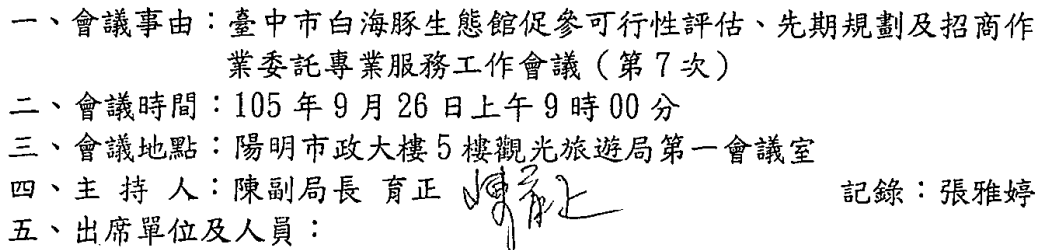 一、會議事由：臺中市白海豚生態館促參可行性評估、先期規劃及招商作
業委託專業服務工作會議（第7次）
二、會議時間：105年9月26日上午9時00分
三、會議地點：陽明市政大樓5樓觀光旅遊局第一會議室
四、主 持 人：陳副局長 育正 陳育正 記錄：張雅婷
五、出席單位及人員：